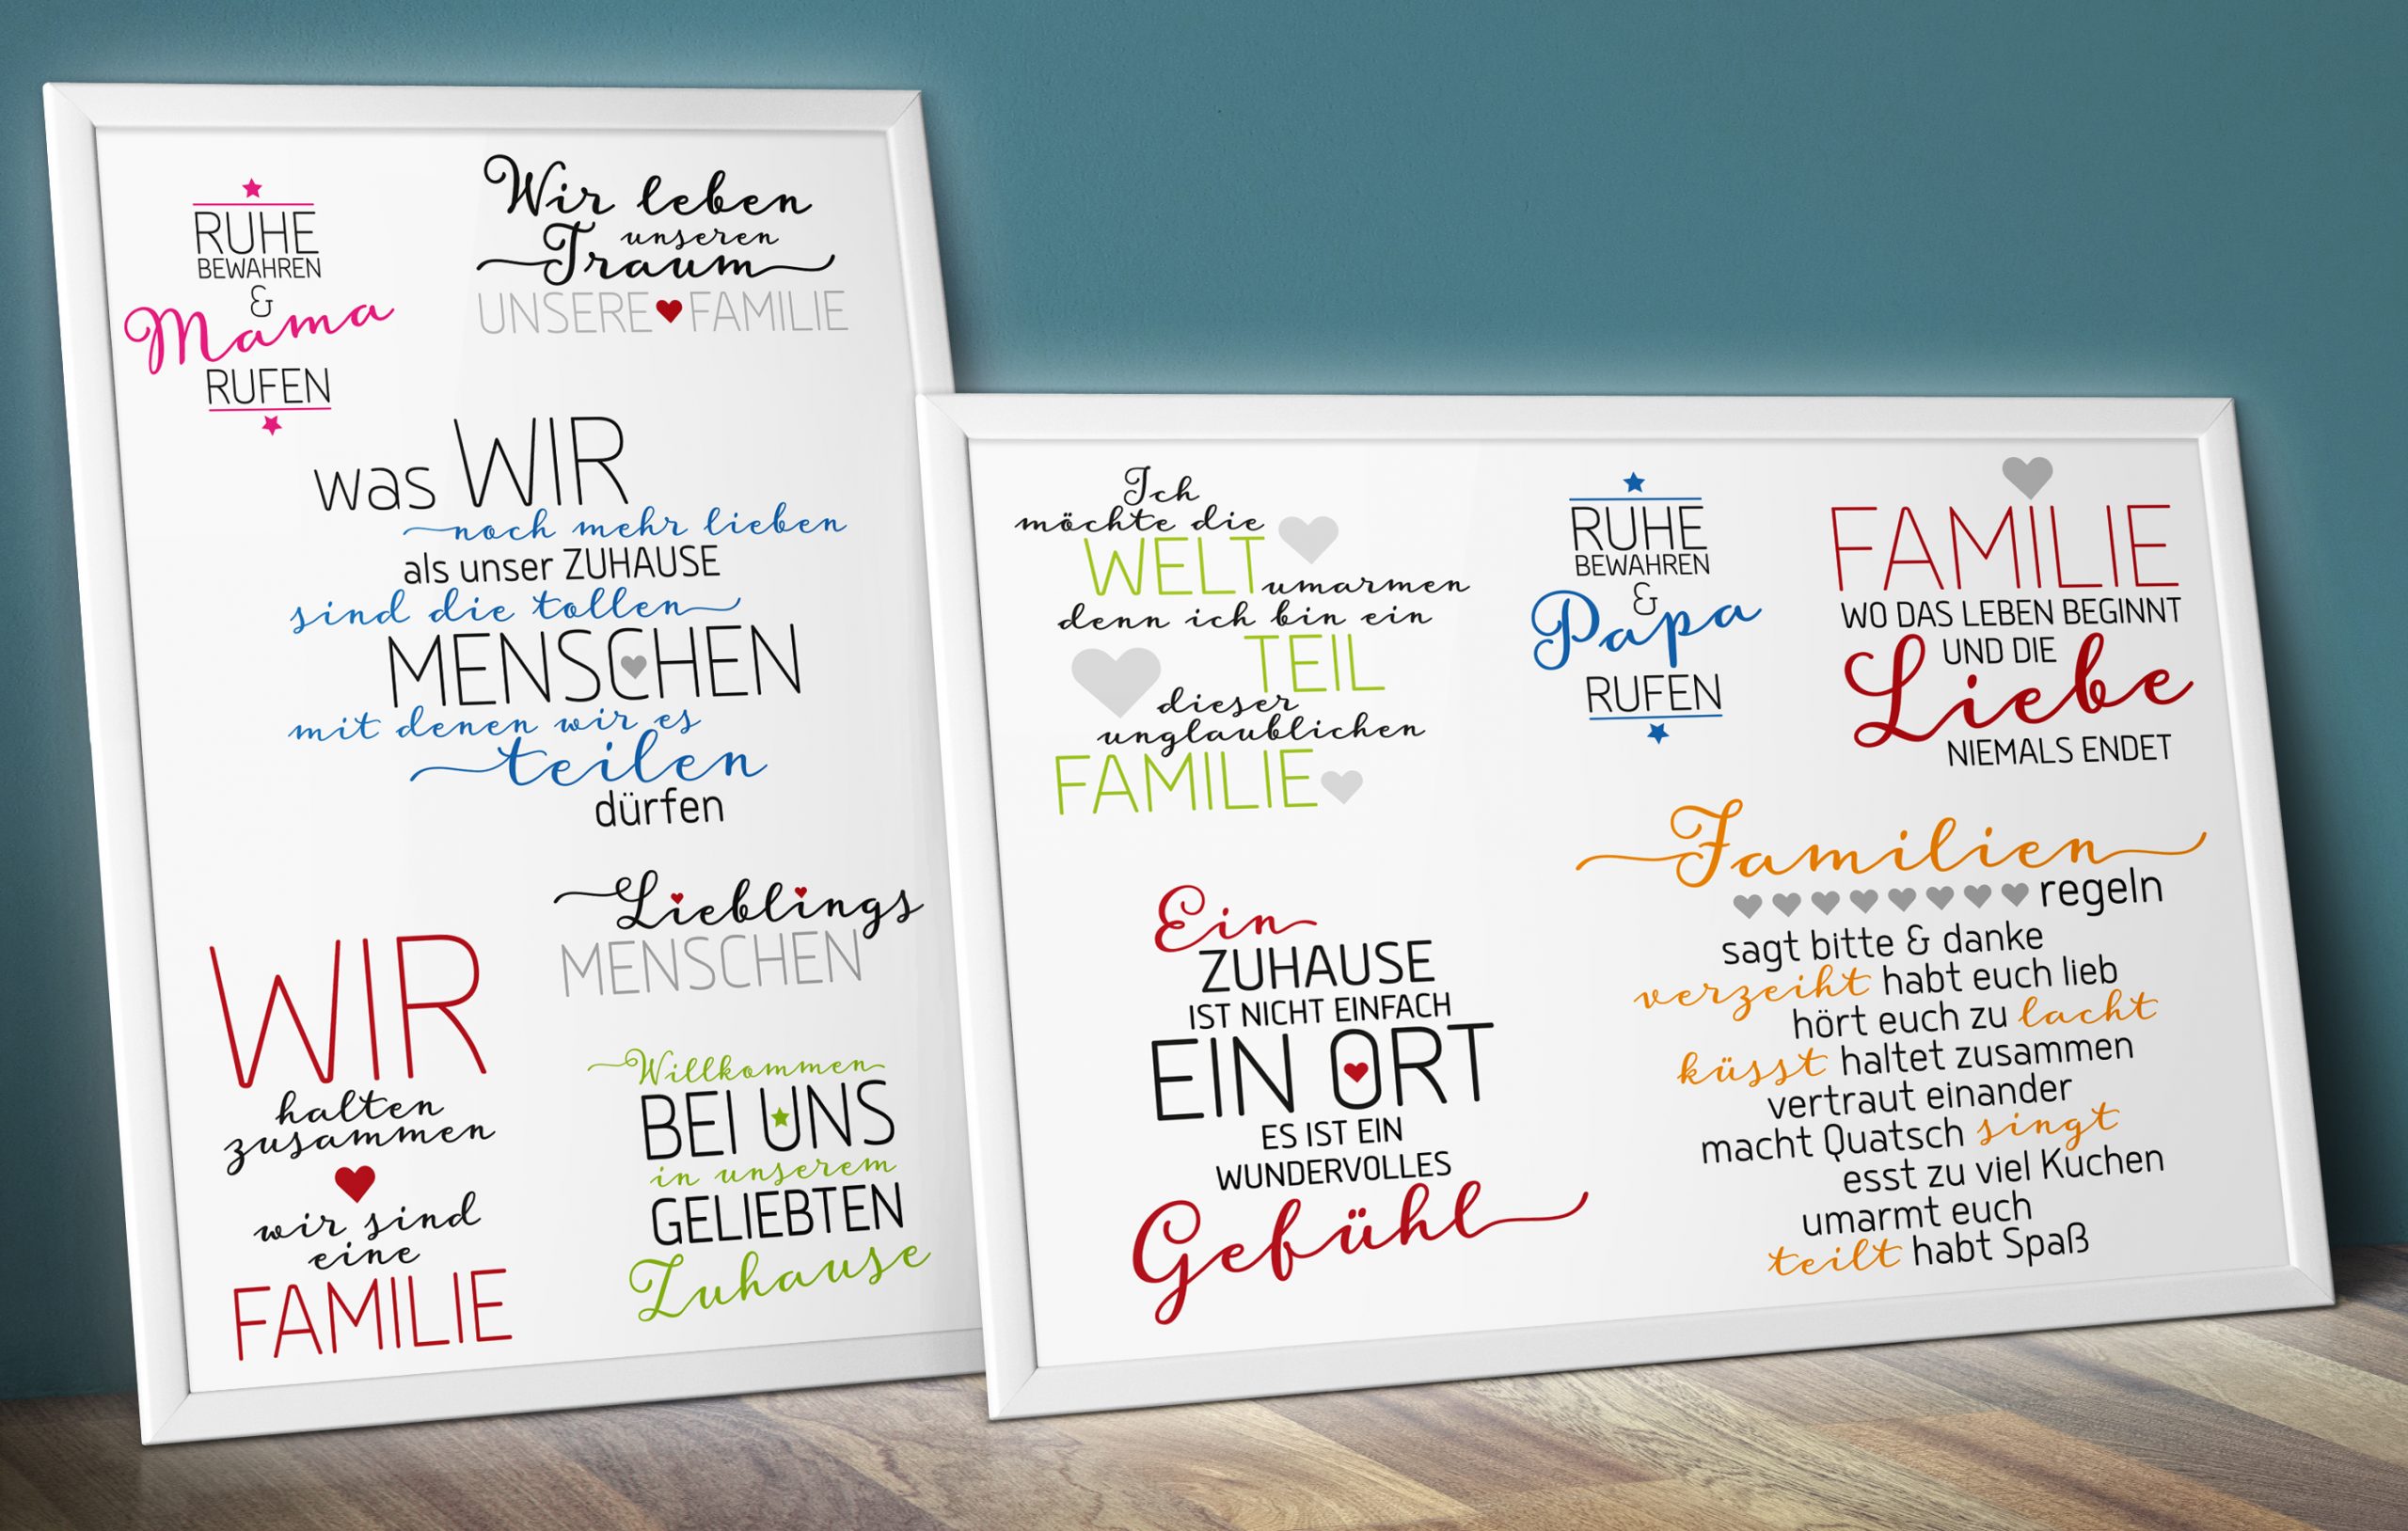 RUHE
BEWAHREN
&
Mama
RUFEN
Wir leben
unseren
Traum
UNSERE FAMILIE
was WIR
noch mehr lieben
als unser ZUHAUSE
sind die tollen
MENSCHEN
mit denen wir es
teilen
dürfen
Lieblings
MENSCHEN
WIR
halten
zusammen
wir sind
eine
FAMILIE
Willkommen
BEI UNS
in unserem
GELIEBTEN
Zuhause
Ich
möchte die
WELT umarmen
denn ich bin ein
TEIL
dieser
unglaublichen
FAMILIE
RUHE
BEWAHREN
&
Papa
RUFEN
FAMILIE
WO DAS LEBEN BEGINNT
UND DIE
Liebe
NIEMALS ENDET
Ein
ZUHAUSE
IST NICHT EINFACH
EIN ORT
ES IST EIN
WUNDERVOLLES
Gefühl
Familien
regeln
sagt bitte & danke
verzeiht habt euch lieb
hört euch zu lacht
küsst haltet zusammen
vertraut einander
macht Quatsch singt
esst zu viel Kuchen
umarmt euch
teilt habt Spaß